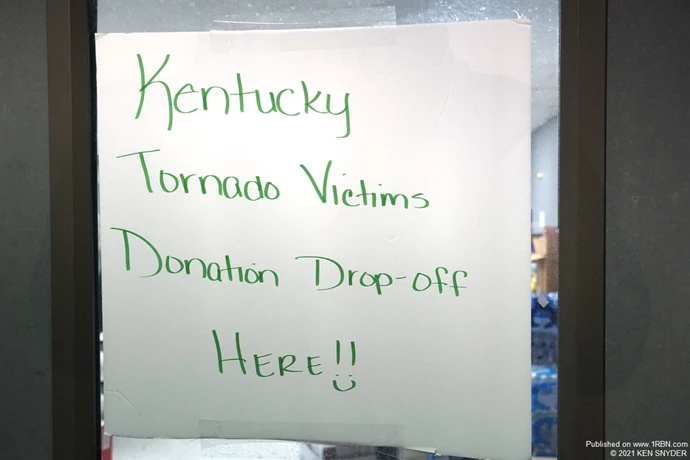 Kentucky
Tornado Victims
Donation Drop-off
HERE!!
Published on www.1RBN.com
© 2021 KEN SNYDER